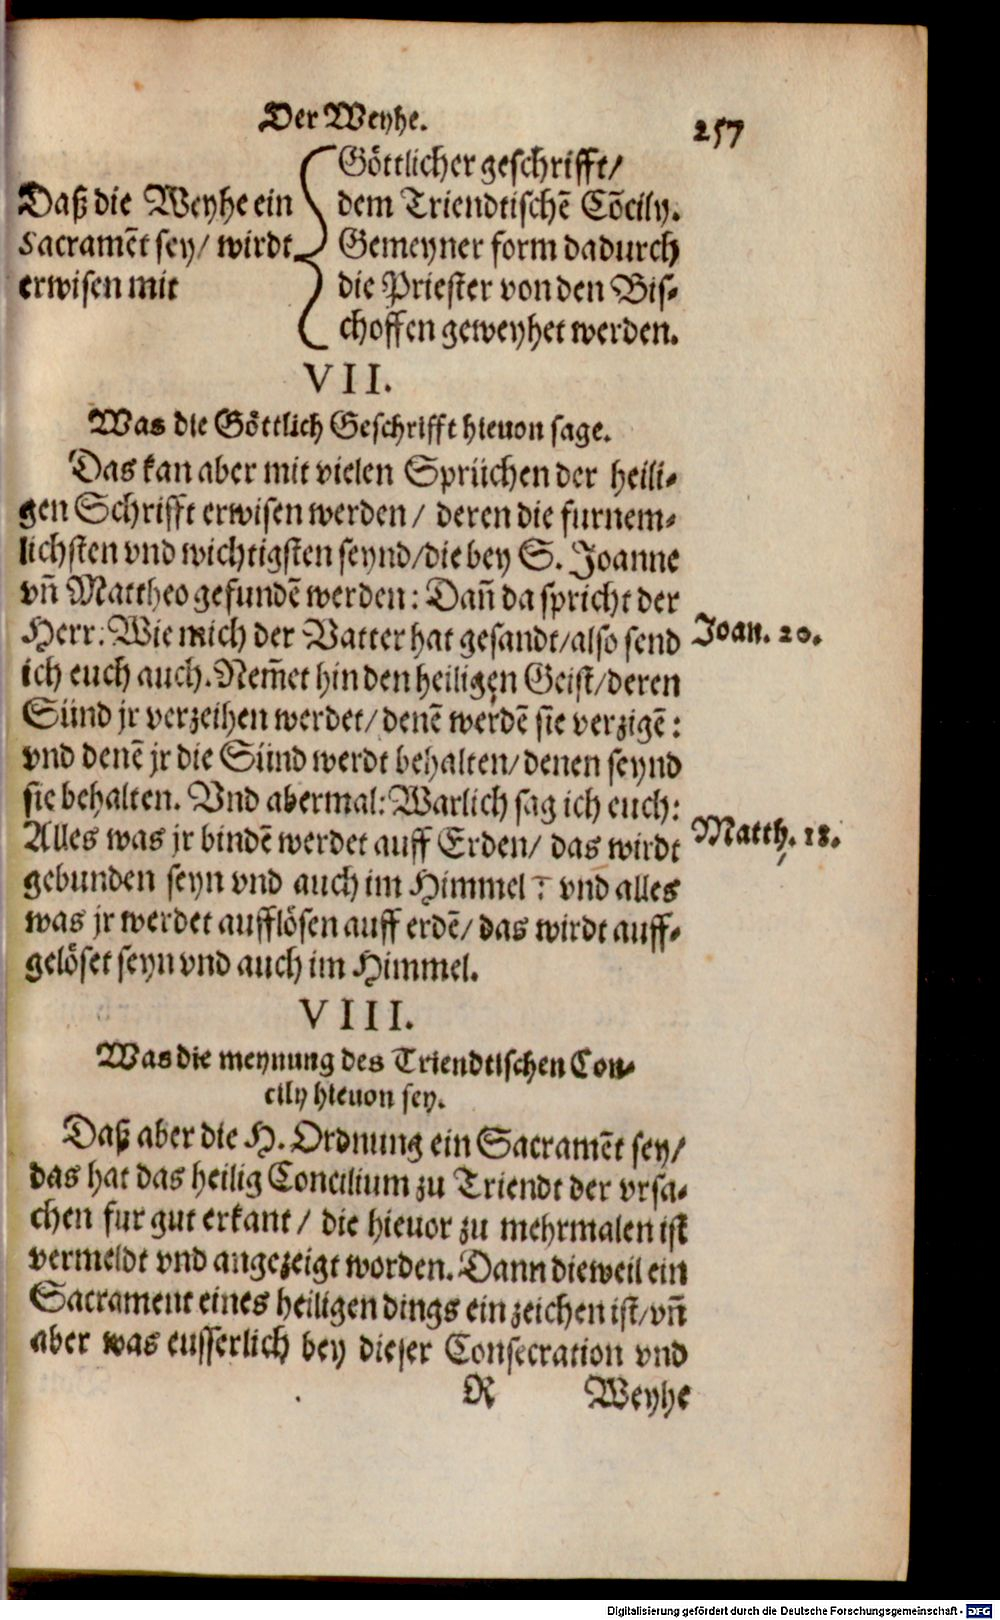 Der Weyhe.
257
Daß die Weyhe ein
Sacramēt sey/ wirdt
erwisen mit
Göttlicher geschrifft/
dem Triendtischē Cōcily.
Gemeyner form dadurch
die Priester von den Bis-
choffen geweyhet werden.
VII.
Was die Göttlich Geschrifft hieuon sage.
Das kan aber mit vielen Sprüchen der heili-
gen Schrifft erwisen werden/ deren die furnem-
lichsten vnd wichtigsten seynd/die bey S. Joanne
vñ Mattheo gefundē werden: Dañ da spricht der
Herr: Wie mich der Vatter hat gesandt/also send
Joan. 20.
ich euch auch. Nem̃et hin den heiligen Geist/deren
Sünd jr verzeihen werdet/ denē werdē sie verzigē:
vnd denē jr die Sünd werdt behalten/denen seynd
sie behalten. Vnd abermal: Warlich sag ich euch:
Alles was jr bindē werdet auff Erden/ das wirdt
Matth. 18.
gebunden seyn vnd auch im Himmel: vnd alles
was jr werdet aufflösen auff erdē/ das wirdt auff-
gelöset seyn vnd auch im Himmel.
VIII.
Was die meynung des Triendtischen Con-
cily hieuon sey.
Daß aber die H. Ordnung ein Sacramēt sey/
das hat das heilig Concilium zu Triendt der vrsa-
chen fur gut erkant/ die hieuor zu mehrmalen ist
vermeldt vnd angezeigt worden. Dann dieweil ein
Sacrament eines heiligen dings ein zeichen ist/vñ
aber was eusserlich bey dieser Consecration vnd
R Weyhe
Digitalisierung gefördert durch die Deutsche Forschungsgemeinschaft - DFG